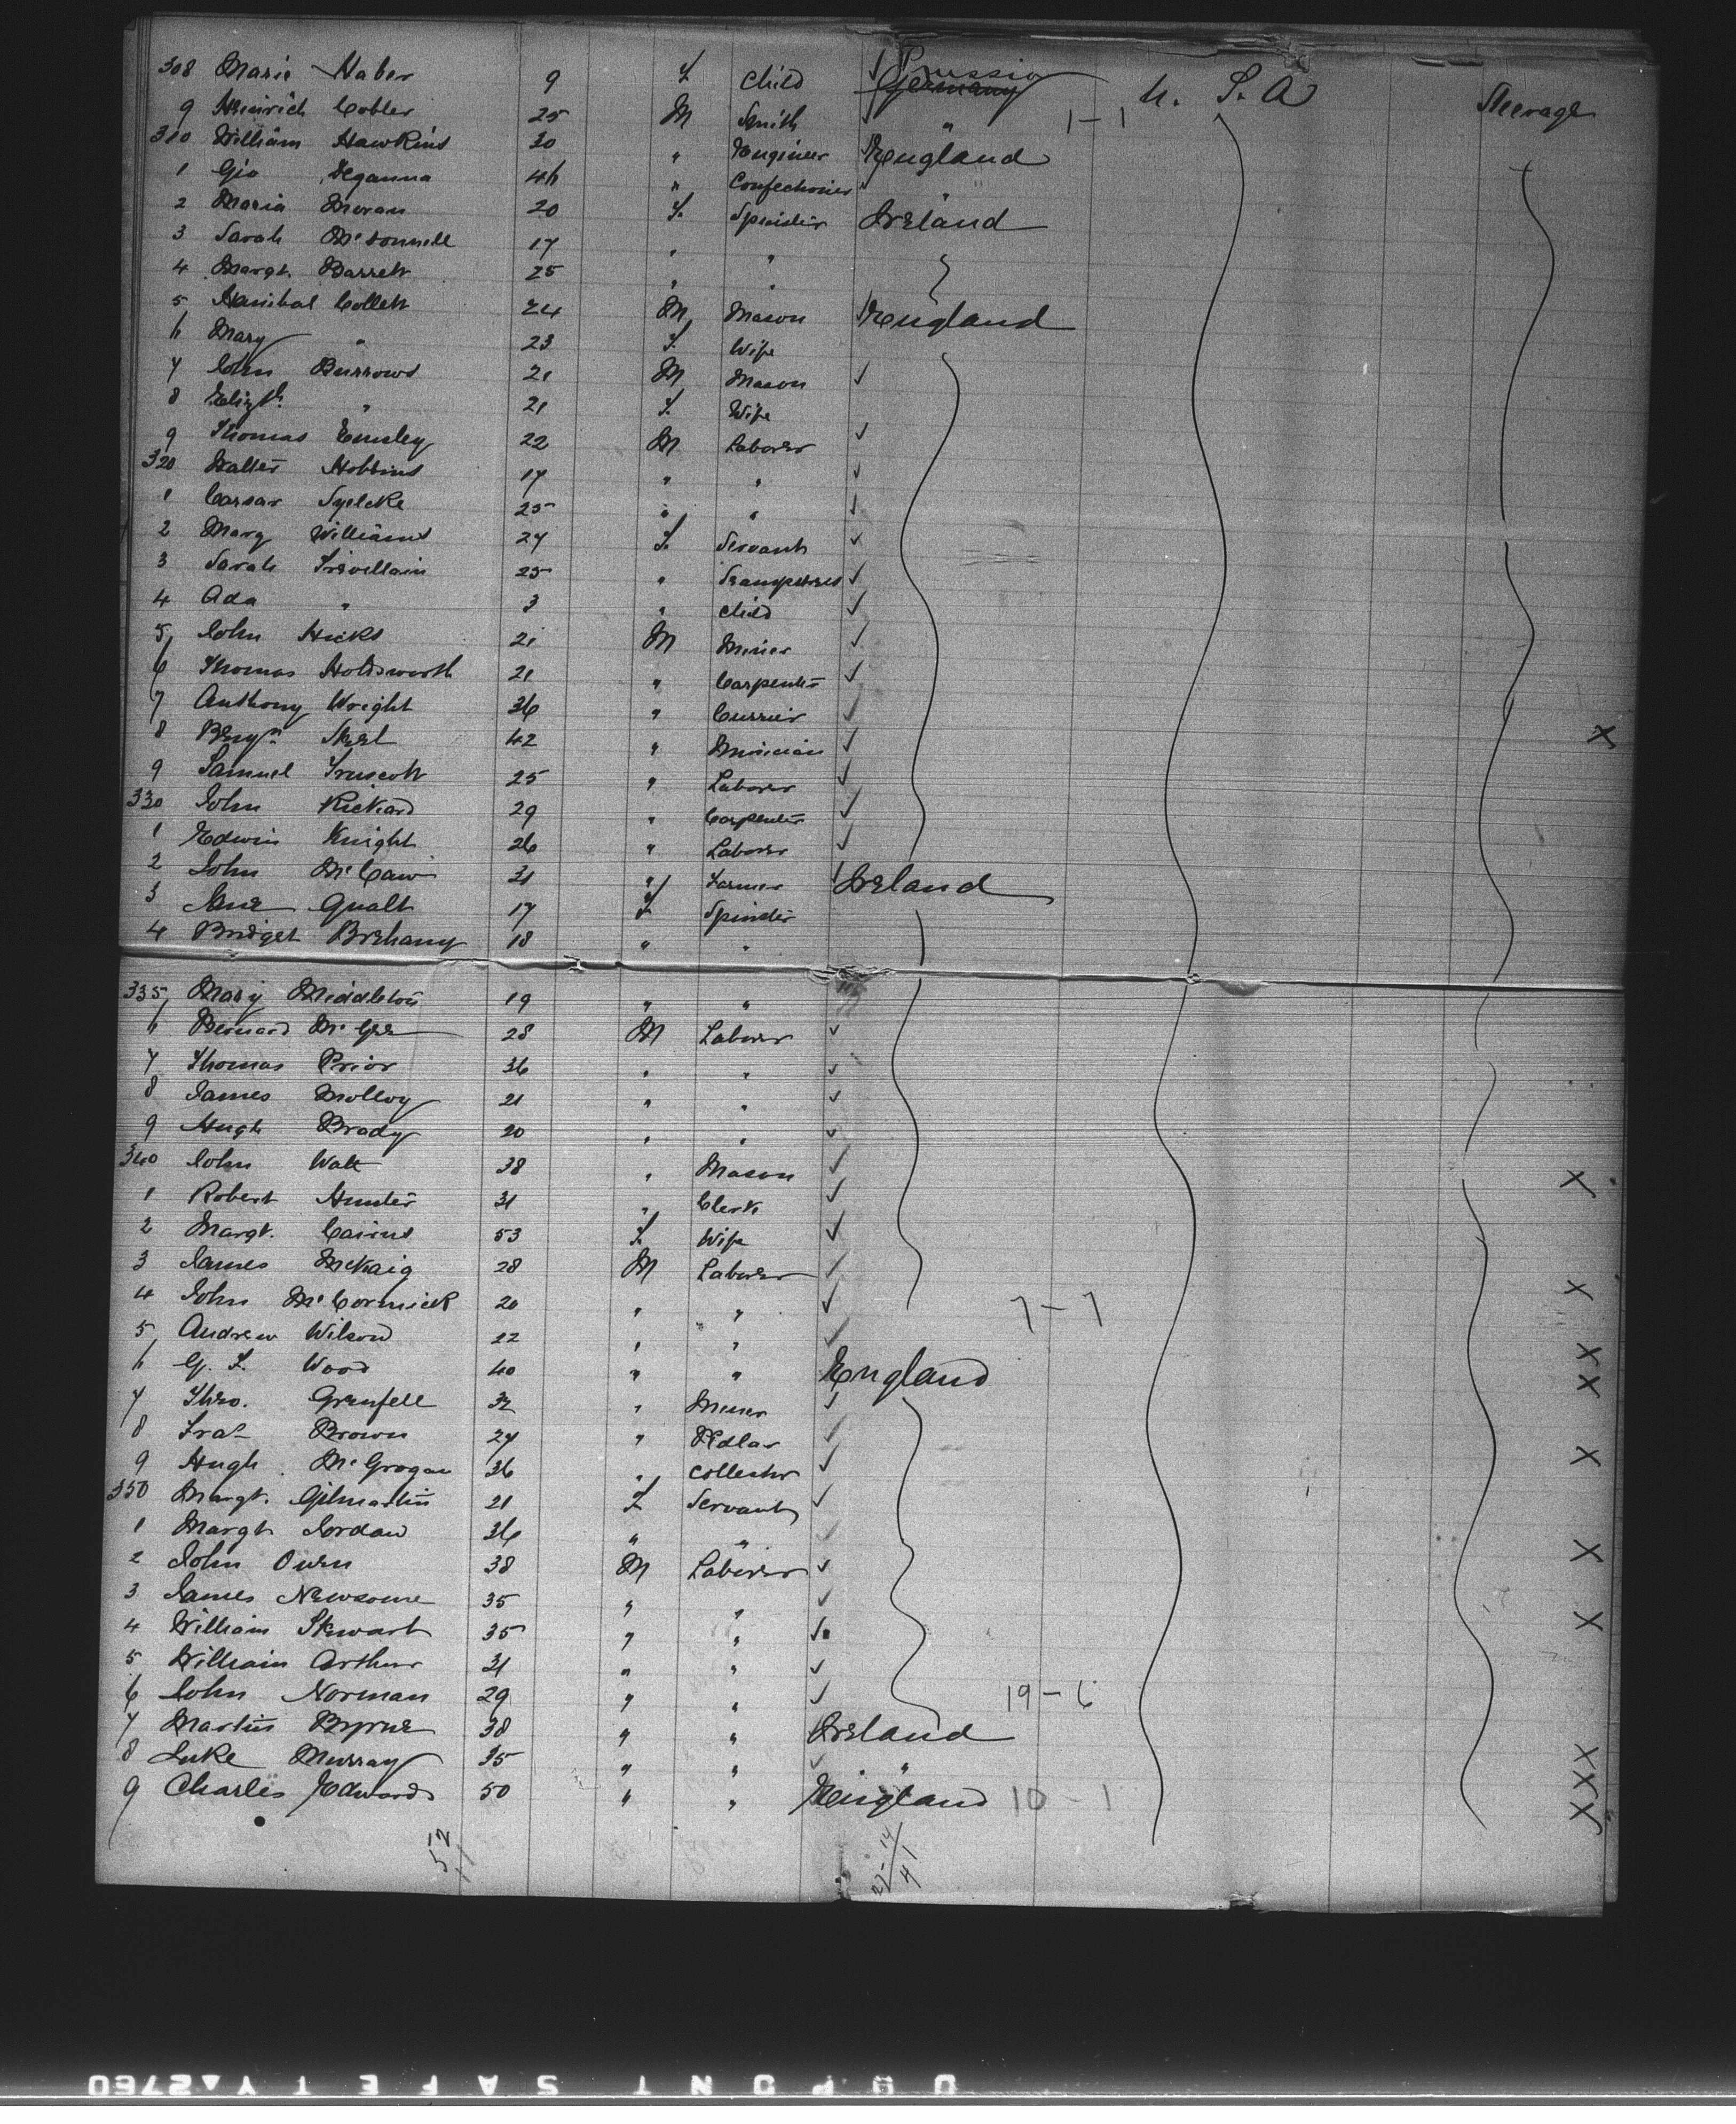 308 Marie Haber 9 F. Child Prussia Germany U. S. A Steerage
9 Heinrich Cobler 25 M Smith " 1-1
310 William Hawkins 30 " Engineer England
1 Gio Deganna 46 " Confectioner "
2 Maria Moran 20 F. Spinster Ireland
3 Sarah McDonnell 17 " "
4 Margt. Barrett 25 " "
5 Hanibal Collett 24 M Mason England
6 Mary " 23 F. Wife
7 John Burrows 21 M Mason
8 Elizth. " 21 F. Wife
9 Thomas Emsley 22 M Laborer
320 Walter Hobbins 17 " "
1 Caesar Syelcke 25 " "
2 Mary Williams 27 F. Servant
3 Sarah Trevellain 25 " Seampstress
4 Ada " 3 " Child
5 John Hicks 21 M Miner
6 Thomas Holdsworth 21 " Carpenter
7 Anthony Wright 36 " Currier
8 Benjn. Skeel 42 " Musician X
9 Samuel Truscott 25 " Laborer
330 John Rickard 29 " Carpenter
1 Edwin Knight 26 " Laborer
2 John McCaw 31 " Farmer Ireland
3 Jane Qualt 17 F Spinster
4 Bridget Brehany 18 " "
335 Mary Middleton 19 " "
6 Bernard McGee 28 M Laborer
7 Thomas Prior 36 " "
8 James Molloy 21 " "
9 Hugh Brady 20 " "
340 John Watt 38 " Mason X
1 Robert Hunter 31 " Clerk
2 Margt. Cairns 53 F. Wife
3 James McKaig 28 M Laborer X
4 John McCormick 20 " " 7-7
5 Andrew Wilson 22 " " X
6 G. F. Wood 40 " " England X
7 Theo. Grenfell 32 " Miner
8 Fras Brown 27 " Pedlar X
9 Hugh McGrogan 36 " Collector
350 Margt. Gilmartin 21 F Servant
1 Margt Jordan 36 " " X
2 John Owen 38 M Laborer
3 James Newsome 35 " " X
4 William Stewart 35 " "
5 William Arthur 31 " "
6 John Norman 29 " " 19-6
7 Martin Byrne 38 " " Ireland X
8 Luke Murray 35 " " " X
9 Charles Edwards 50 " " England 10-1 X
52
11
27-14
41
DUPONT SAFETY 2760